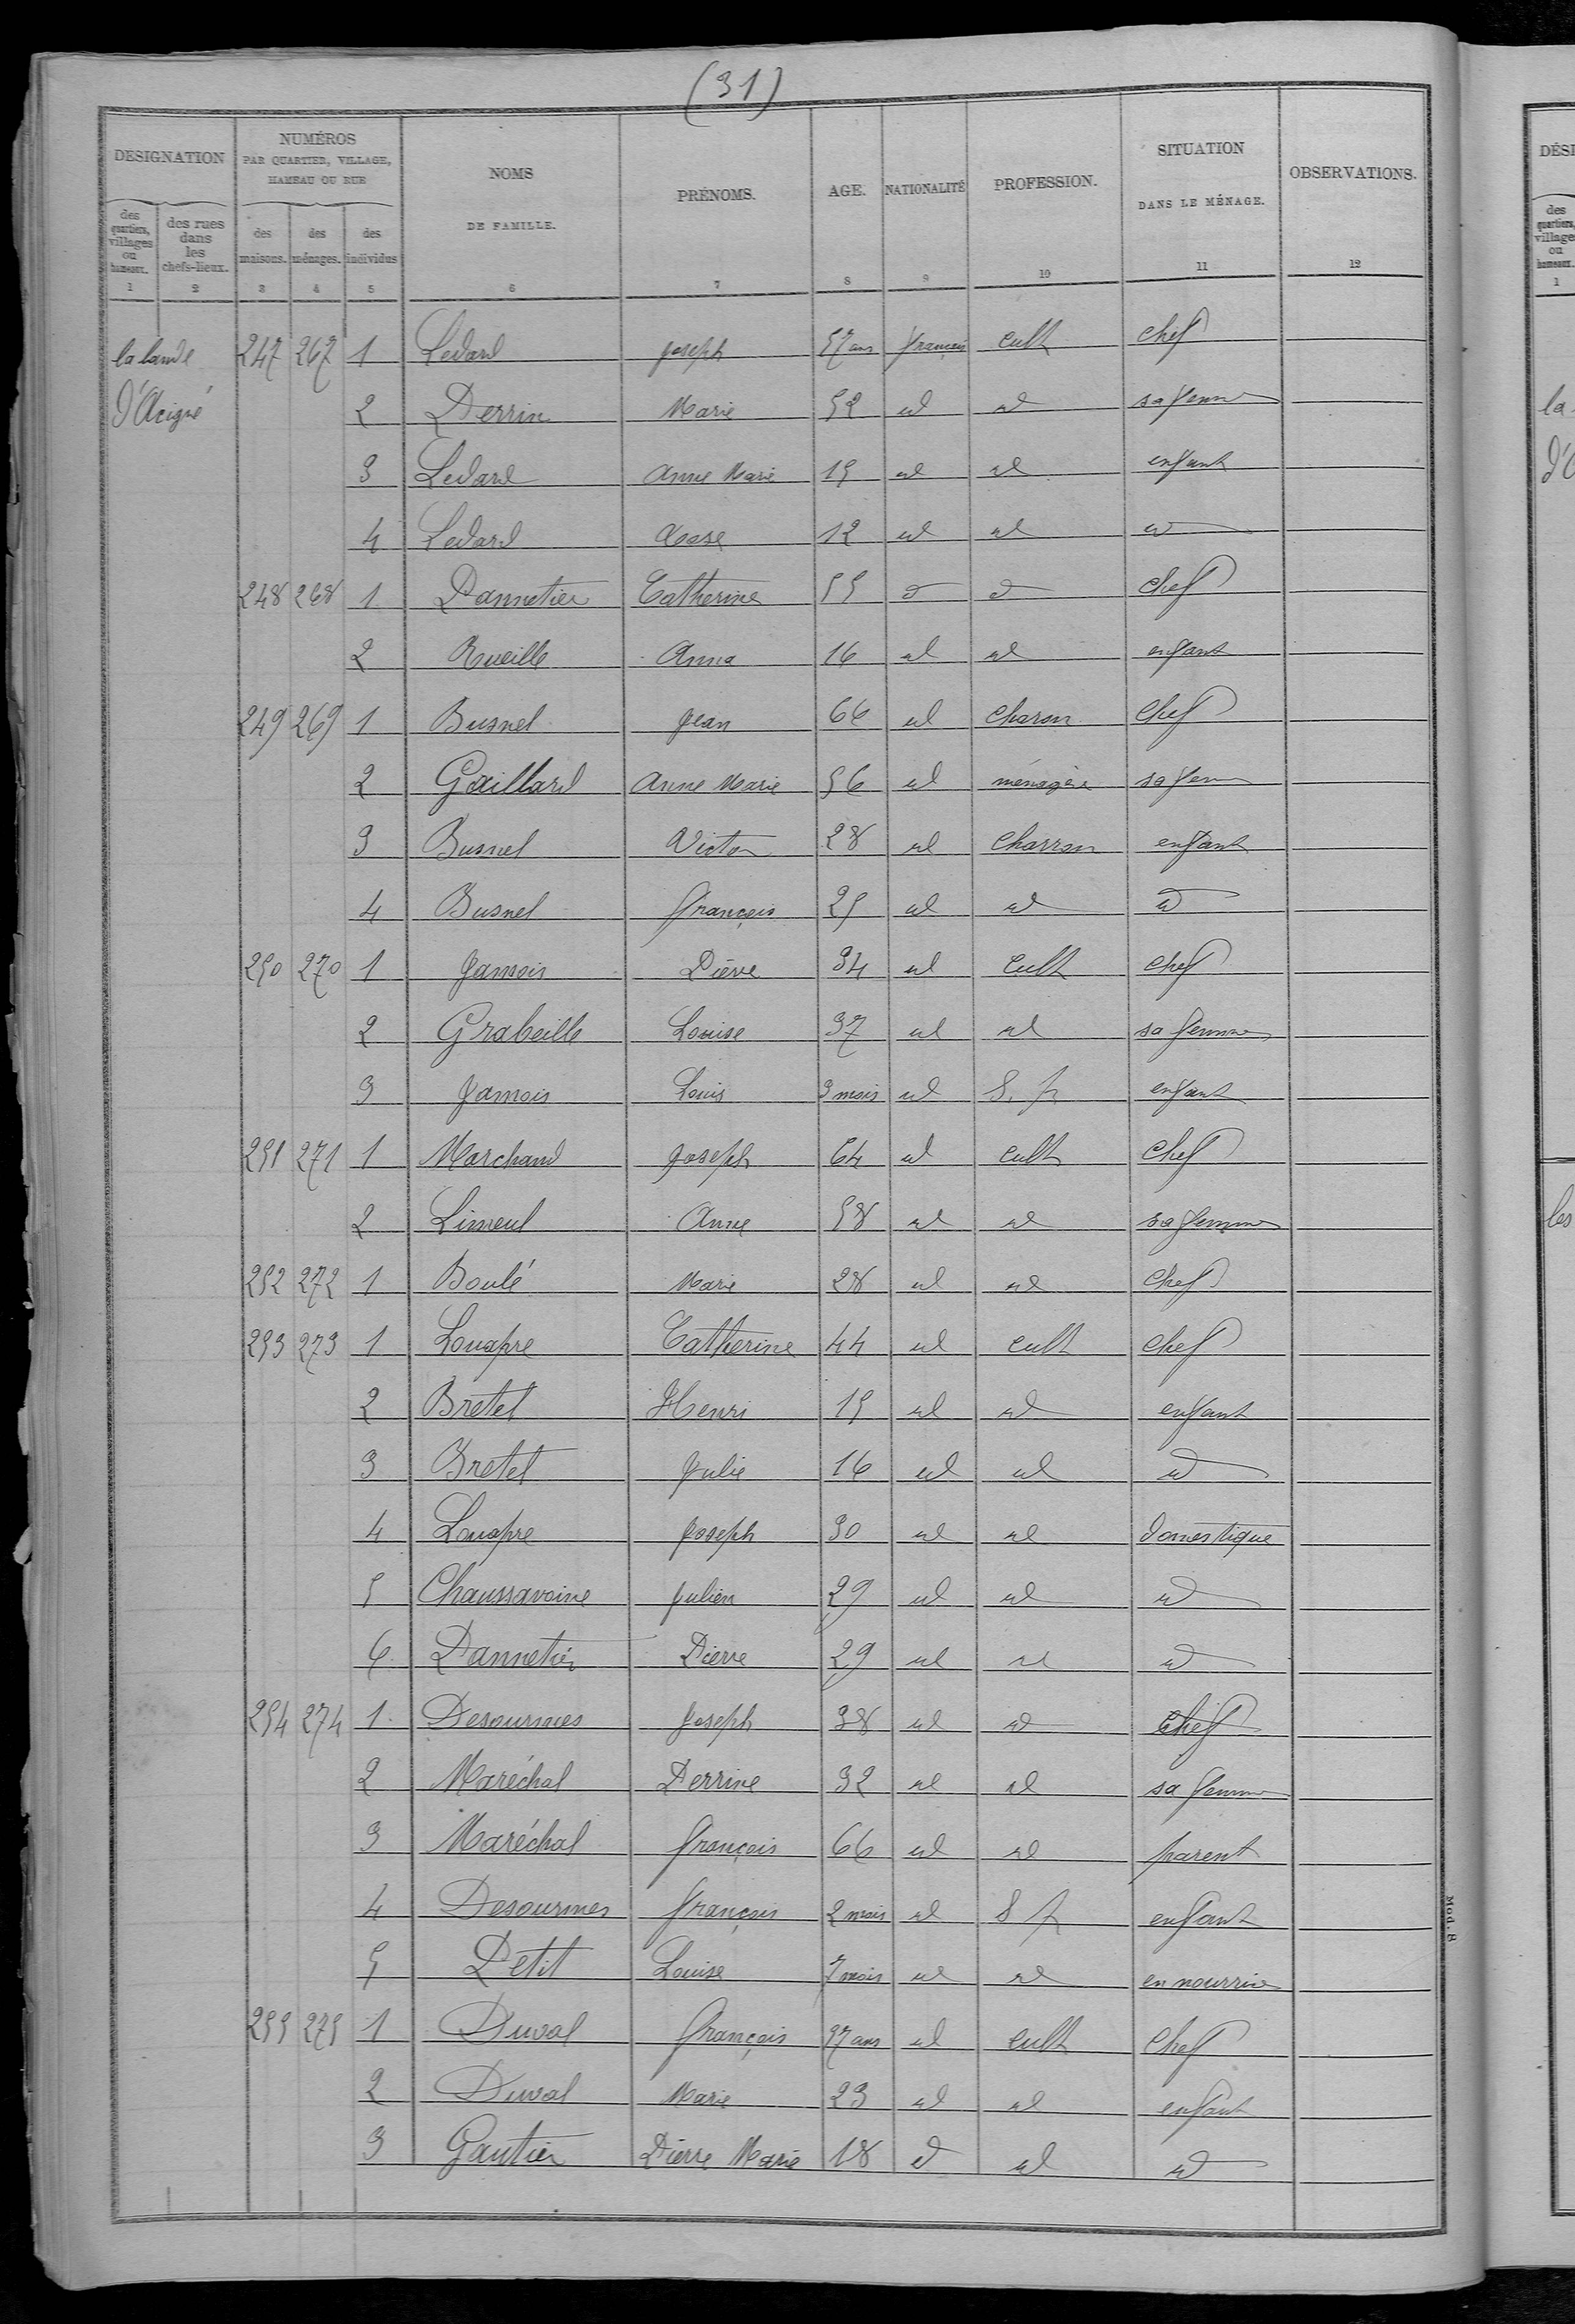 (31)
DÉSIGNATION NUMÉROS PAR QUARTIER, VILLAGE, HAMEAU OU RUE NOMS DE FAMILLE. PRÉNOMS. AGE. NATIONALITÉ PROFESSION. SITUATION DANS LE MÉNAGE. OBSERVATIONS.
des quartiers, villages ou hameaux. des rues dans les chefs-lieux. des maisons. des ménages. des individus
1 2 3 4 5 6 7 8 9 10 11 12
la lande 247 267 1 Ledard joseph 57 ans français cult chef
d'Acigné 2 Perrin Marie 52 id id sa femme
3 Ledard Anne Marie 15 id id enfant
4 Ledard Rose 12 id id id
248 268 1 Pannetier Catherine 55 d d chef
2 Rueille Anna 16 id id enfant
249 269 1 Busnel jean 66 id charon chef
2 Gaillard Anne Marie 56 id ménagère sa fem
3 Busnel Victor 28 id charron enfant
4 Busnel françois 25 id id id
250 270 1 jamois Pierre 34 id cult chef
2 Grabeille Louise 37 id id sa femme
3 jamois Louis 3 mois id S. p enfant
251 271 1 Marchand joseph 64 id cult chef
2 Limeul Anne 58 id id sa femme
252 272 1 Boulé Marie 28 id id chef
253 273 1 Louapre Catherine 44 id cult chef
2 Bretel Henri 15 id id enfant
3 Bretel julie 16 id id id
4 Louapre joseph 30 id id domestique
5 Chaussavoine julien 29 id id id
6 Pannetier Pierre 29 id id id
254 274 1 Desourmes joseph 38 id id chef
2 Maréchal Perrine 32 id id sa femme
3 Maréchal françois 66 id id parent
4 Desourmes françois 2 mois id S p enfant
5 Petit Louise 7 mois id id en nourrice
255 275 1 Duval françois 57 ans id cult chef
2 Duval Marie 23 id id enfant
3 Gautier Pierre Marie 18 d id id
Mod. 8
DÉSI
des quartiers, village ou hameaux.
1
la
d'A
les